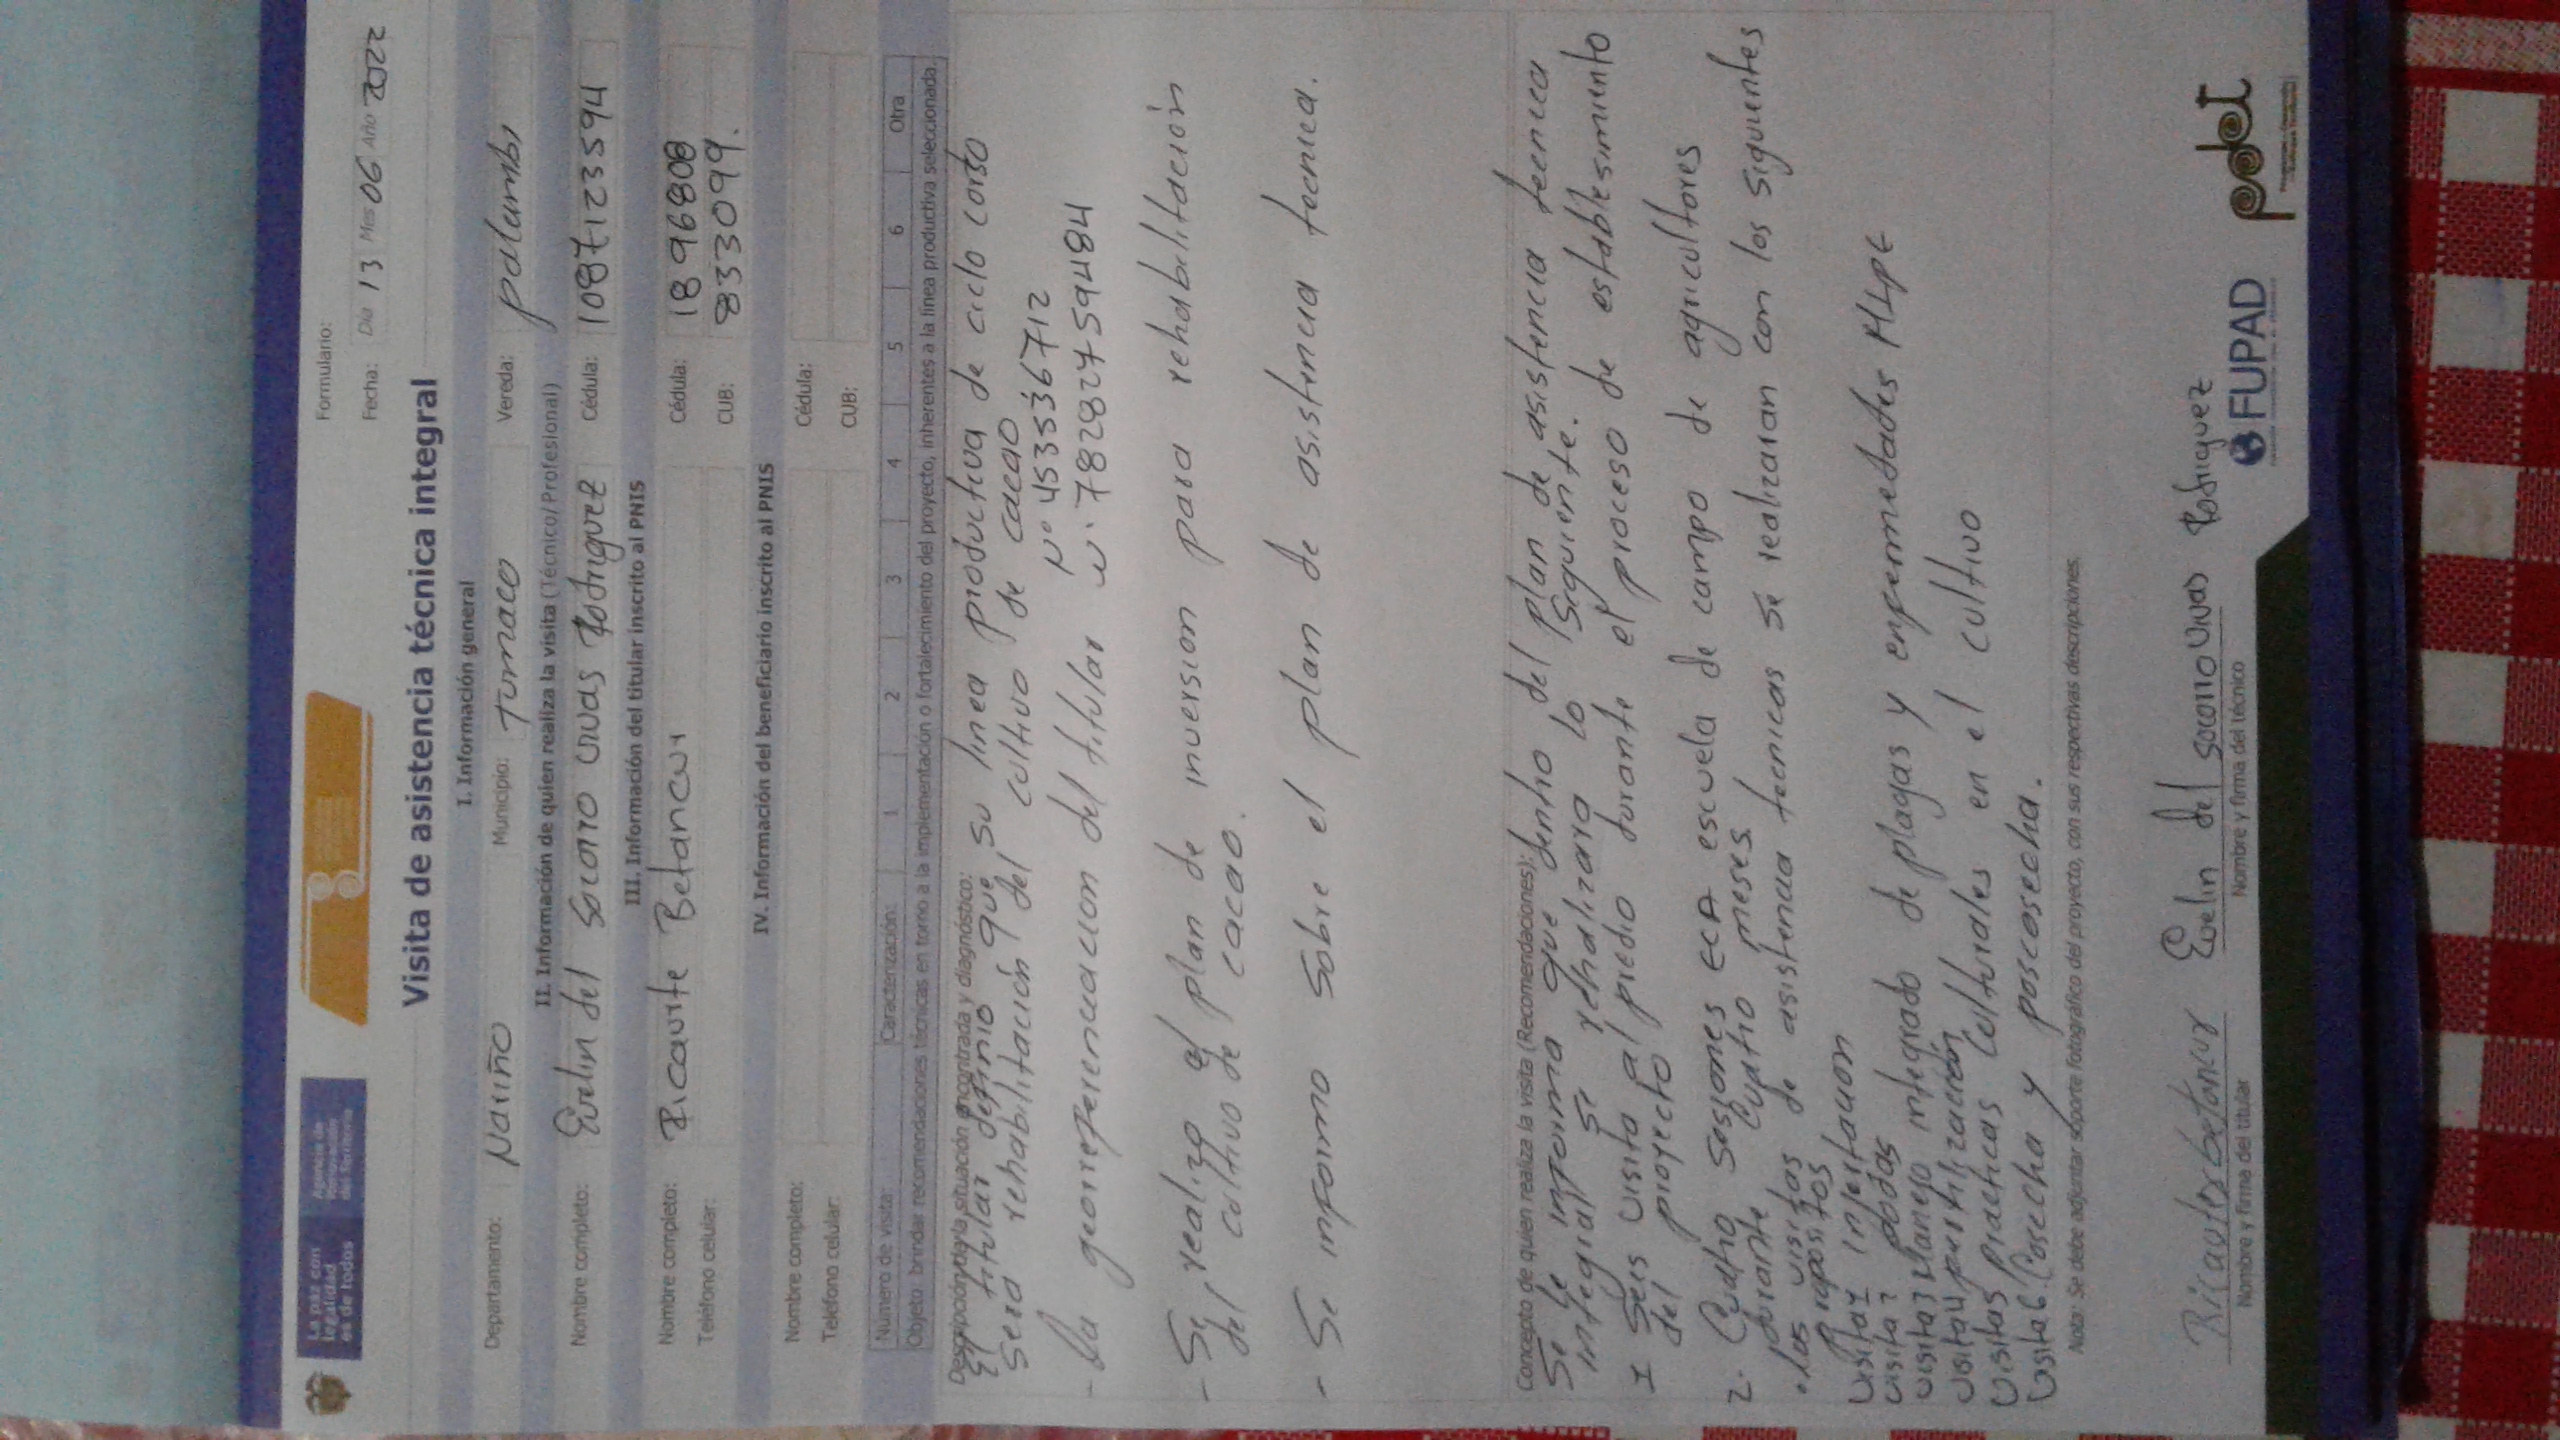 La paz con legalidad es de todos
Agencia de Renovación del Territorio
Formulario:
Fecha: Día 13 Mes 06 Año 2022
Visita de asistencia técnica integral
I. Información general
Departamento: Nariño Municipio: Tumaco Vereda: palambi
II. Información de quien realiza la visita (Técnico/Profesional)
Nombre completo: Evelin del Socorro vivas Rodriguez Cédula: 1087123594
III. Información del titular inscrito al PNIS
Nombre completo: Ricaurte Betancur Cédula: 1896808
Teléfono celular: CUB: 833099.
IV. Información del beneficiario inscrito al PNIS
Nombre completo: Cédula:
Teléfono celular: CUB:
Número de visita: Caracterización: 1 2 3 4 5 6 Otra
Objeto: brindar recomendaciones técnicas en torno a la implementación o fortalecimiento del proyecto, inherentes a la línea productiva seleccionada.
Descripción de la situación encontrada y diagnóstico:
El titular definio que su linea productiva de ciclo corto
sera rehabilitación del cultivo de cacao
N° 453536712
- La georreferenciacion del titular W. 78282759484
- Se realizo el plan de inversion para rehabilitación
del cultivo de cacao.
- Se informo sobre el plan de asistencia tecnica.
Concepto de quien realiza la visita (Recomendaciones):
Se le informa que dentro del plan de asistencia tecnica
integral se rehalizara lo siguiente.
1 Seis visita al predio durante el proceso de establesimiento
del proyecto
2. Cuatro sesiones ECA escuela de campo de agricultores
durante cuatro meses.
. las visitas de asistencia tecnicas se realizaran con los siguientes
Propositos
visita 1 injertacion
visita 2 podas
visita 3 Manejo integrado de plagas y enfermedades MIPE
visita 4 fertilización
visita 5 practicas culturales en el cultivo
visita 6 Cosecha y poscosecha.
Nota: Se debe adjuntar soporte fotográfico del proyecto, con sus respectivas descripciones.
Ricaurte betancur Evelin del socorro vivas Rodriguez
Nombre y firma del titular Nombre y firma del técnico
FUPAD
pdet